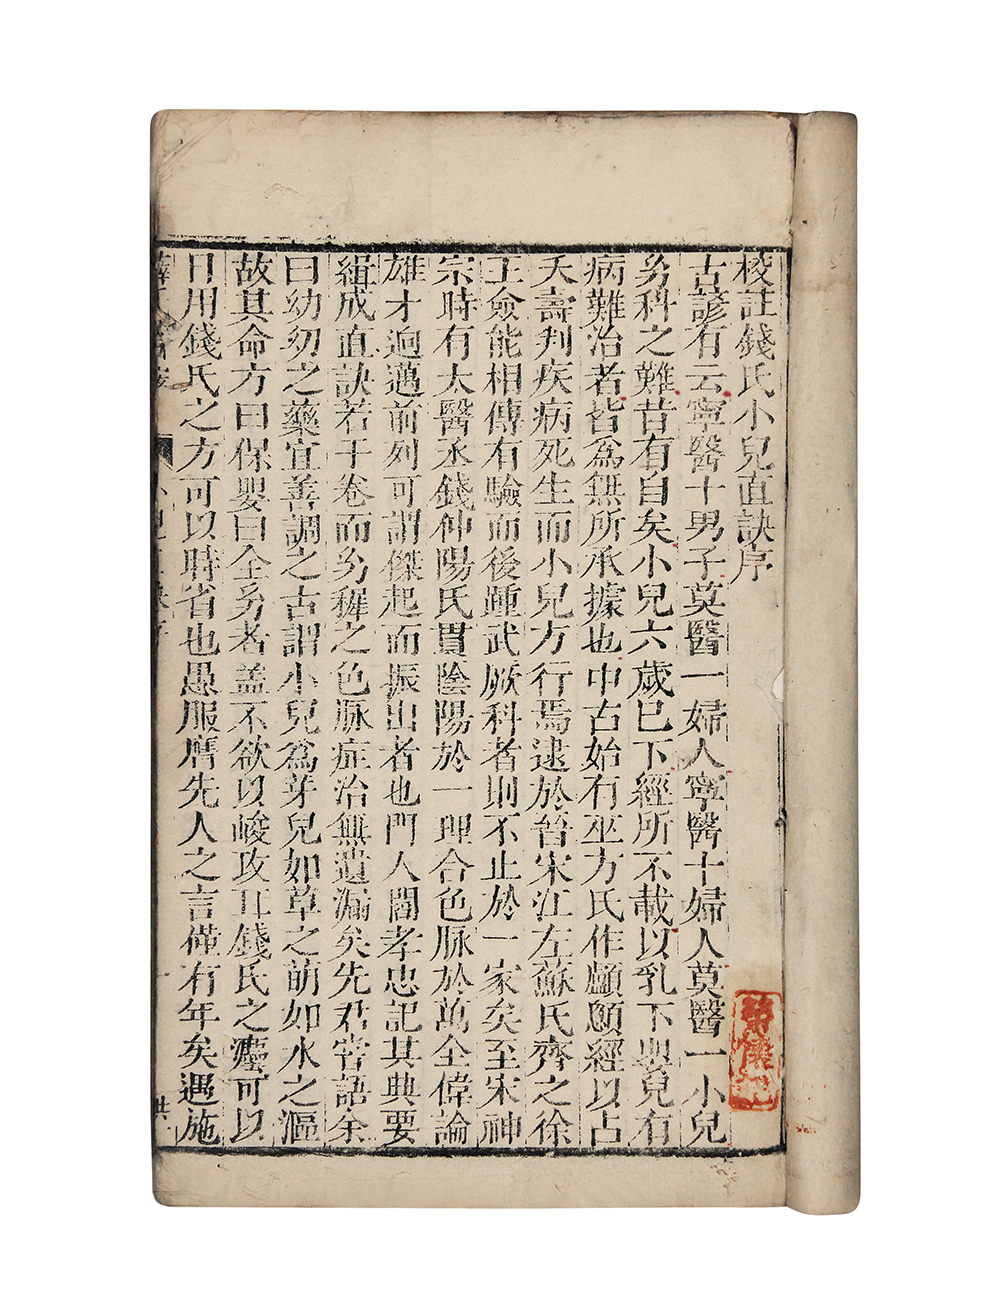 校註錢氏小兒直訣序
古諺有云寧醫十男子莫醫一婦人寧醫十婦人莫醫一小兒
㓜科之難昔有自矣小兒六歲巳下經所不載以乳下嬰兒有
病難治者皆爲無所承據也中古始有巫方氏作顱顖經以占
夭壽判疾病死生而小兒方行焉逮於晉宋江左蘇氏齊之徐
王僉能相傳有驗而後踵武厥科者則不止於一家矣至宋神
宗時有大醫丞錢仲陽氏貫陰陽於一理合色脉於萬全偉論
雄才迥邁前列可謂傑起而振出者也門人閻孝忠記其典要
緝成直訣若干卷而㓜稺之色脉症治無遺漏矣先君嘗語余
曰幼㓜之藥宜善調之古謂小兒爲芽兒如草之萌如水之漚
故其命方曰保嬰曰全㓜者蓋不欲以峻攻耳錢氏之㢆可以
日用錢氏之方可以時省也愚服膺先人之言僅有年矣遇施